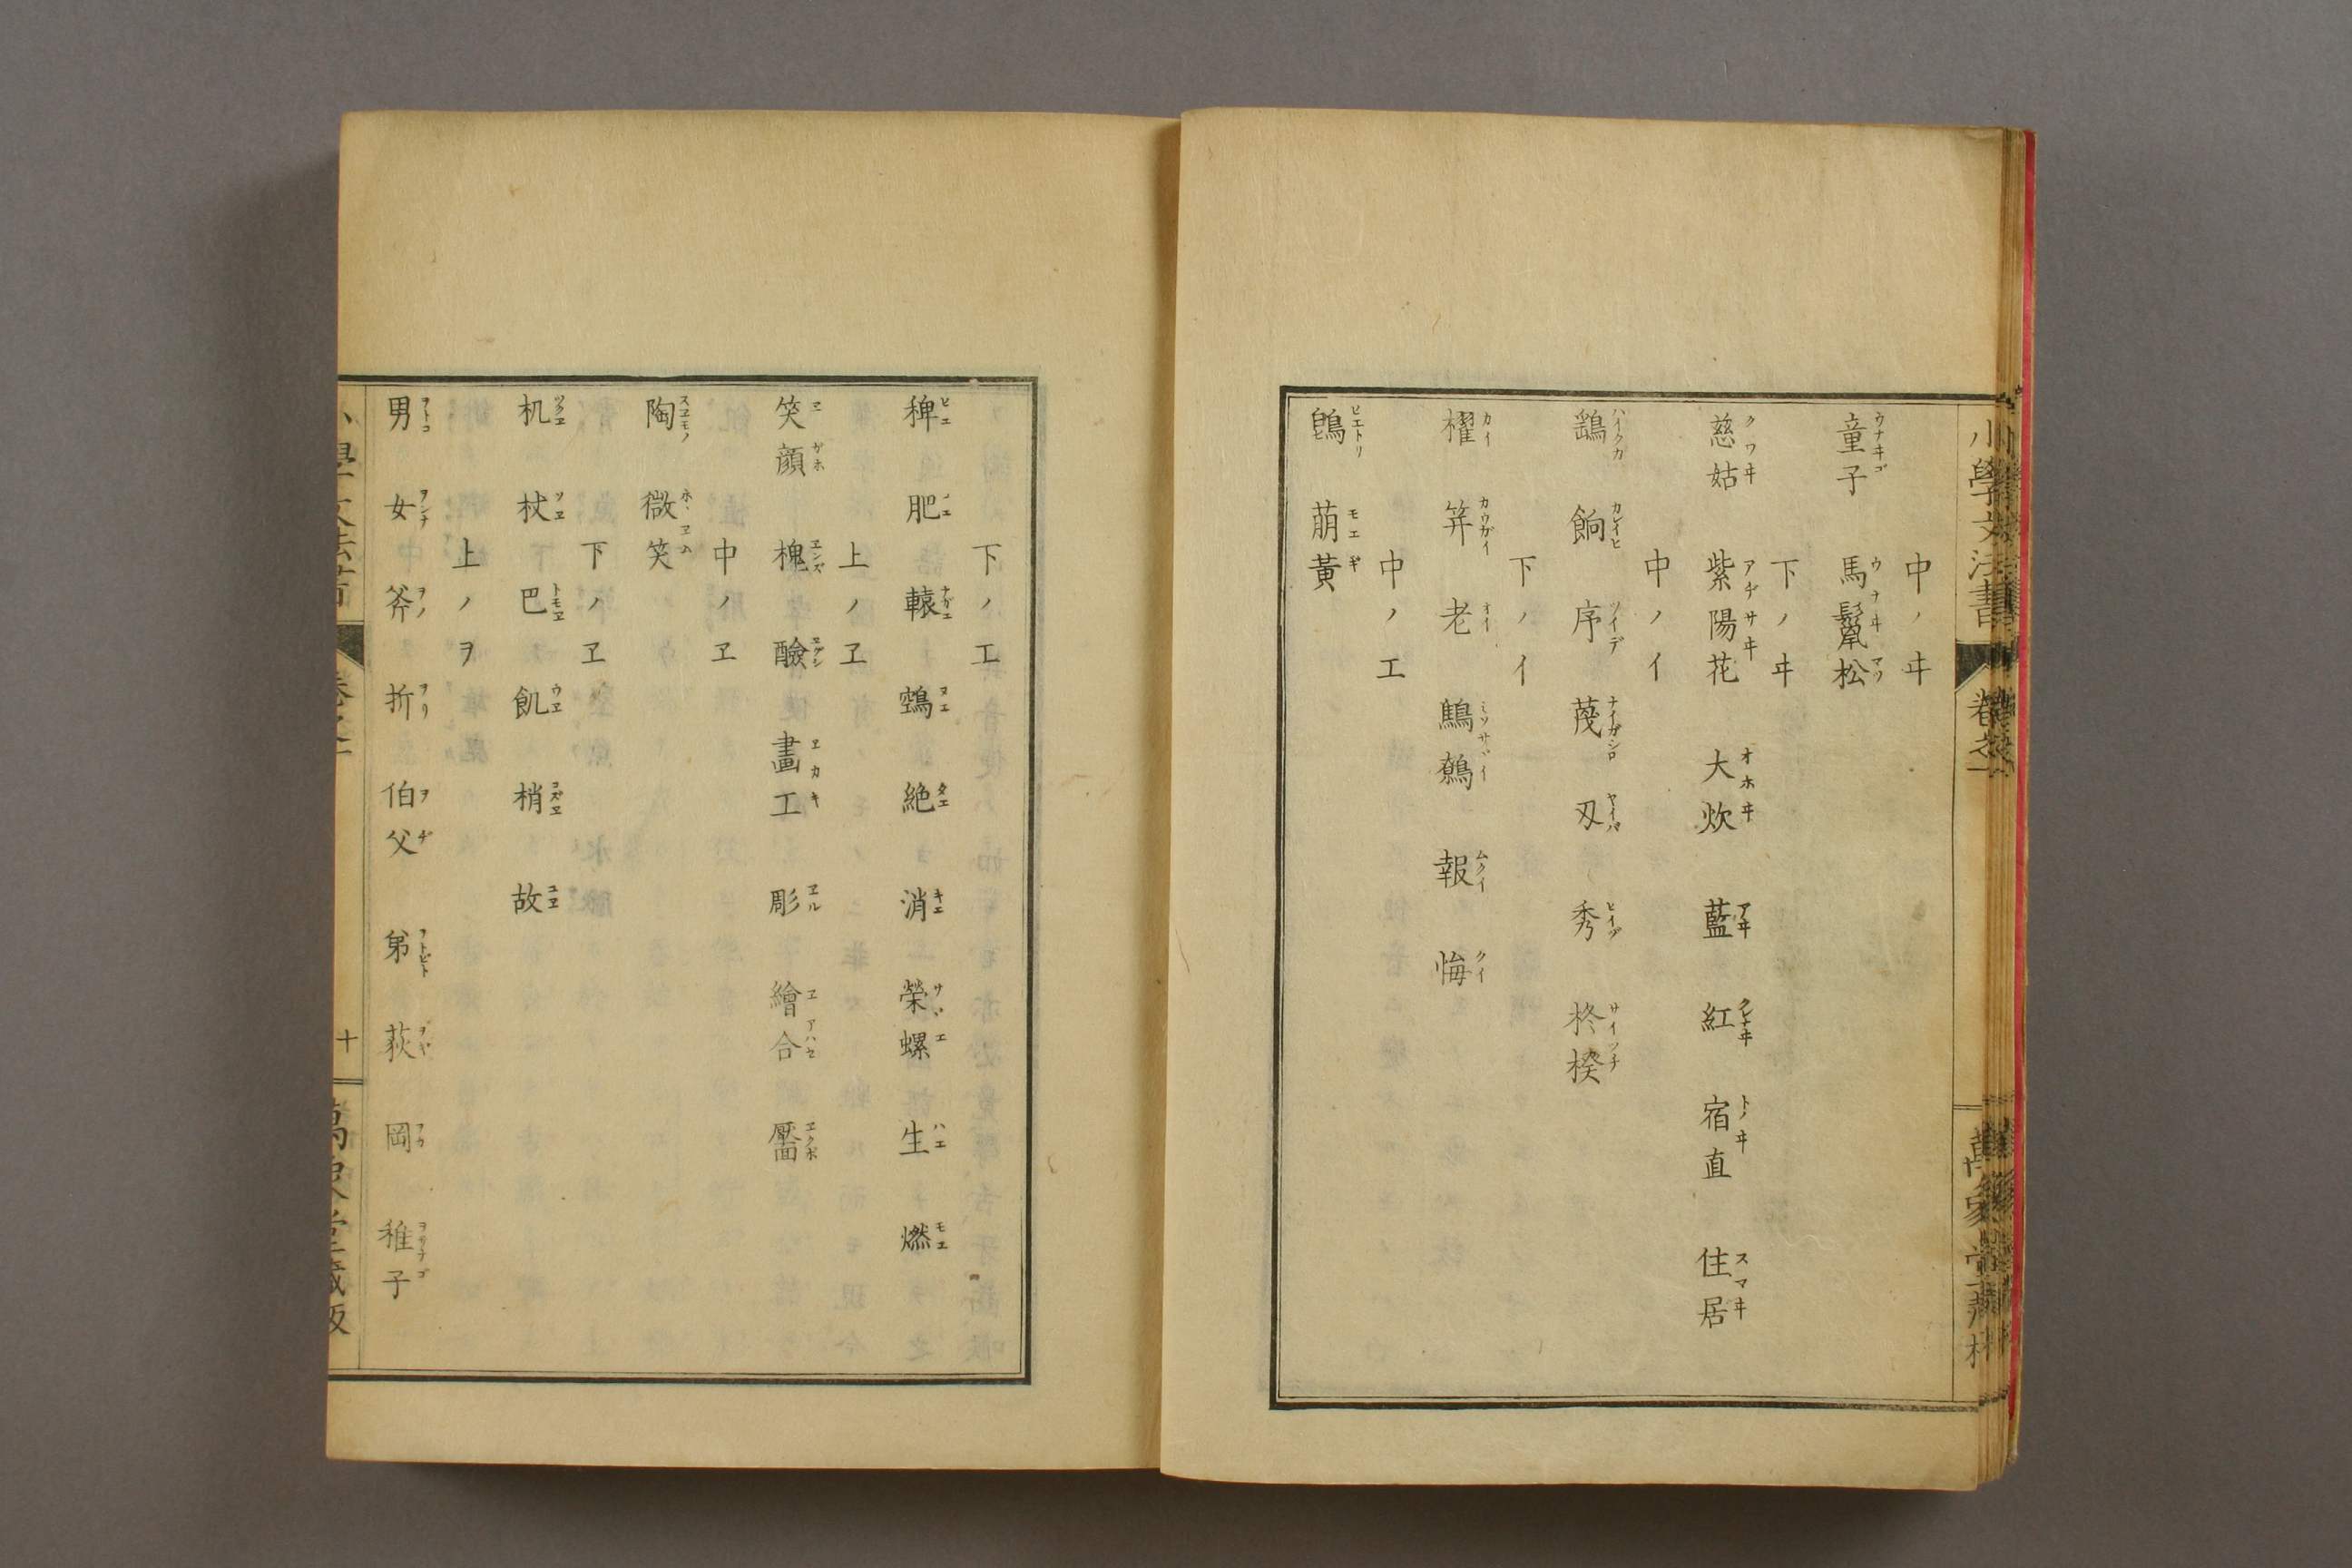 小學文法書 卷之一
中ノヰ
童子ウナヰゴ 馬鬣松ウナヰマツ
下ノヰ
慈姑クワヰ 紫陽花アヂサヰ 大炊オホヰ 藍アヰ 紅クレナヰ 宿直トノヰ 住居スマヰ
中ノイ
餉カレイヒ 序ツイデ 蔑ナイガシロ 刄ヤイバ 秀ヒイヅ 柊楑サイツチ
下ノイ
櫂カイ 笄カウガイ 老オイ 鷦鷯ミソサヾイ 報ムクイ 悔クイ
中ノエ
鵯ヒエトリ 萠黃モエギ
下ノエ
稗ヒエ 肥コエ 轅ナガエ 鵼ヌエ 絶タエ 消キエ 榮螺サヾエ 生ハエ 燃モエ
上ノヱ
笑顔ヱガホ 槐ヱンズ 醶ヱグシ 畫工ヱカキ 彫ヱル 繪合ヱアハセ 靨ヱクボ
中ノヱ
陶スヱモノ 微笑ホヽヱム
下ノヱ
机ツクヱ 杖ツヱ 巴トモヱ 飢ウヱ 梢コズヱ 故ユヱ
上ノヲ
男ヲトコ 女ヲンナ 斧ヲノ 折ヲリ 伯父ヲヂ 弟ヲトヒト 荻ヲギ 岡ヲカ 稚子ヲサナゴ
小學文法書 卷之一 十 萬象堂藏版